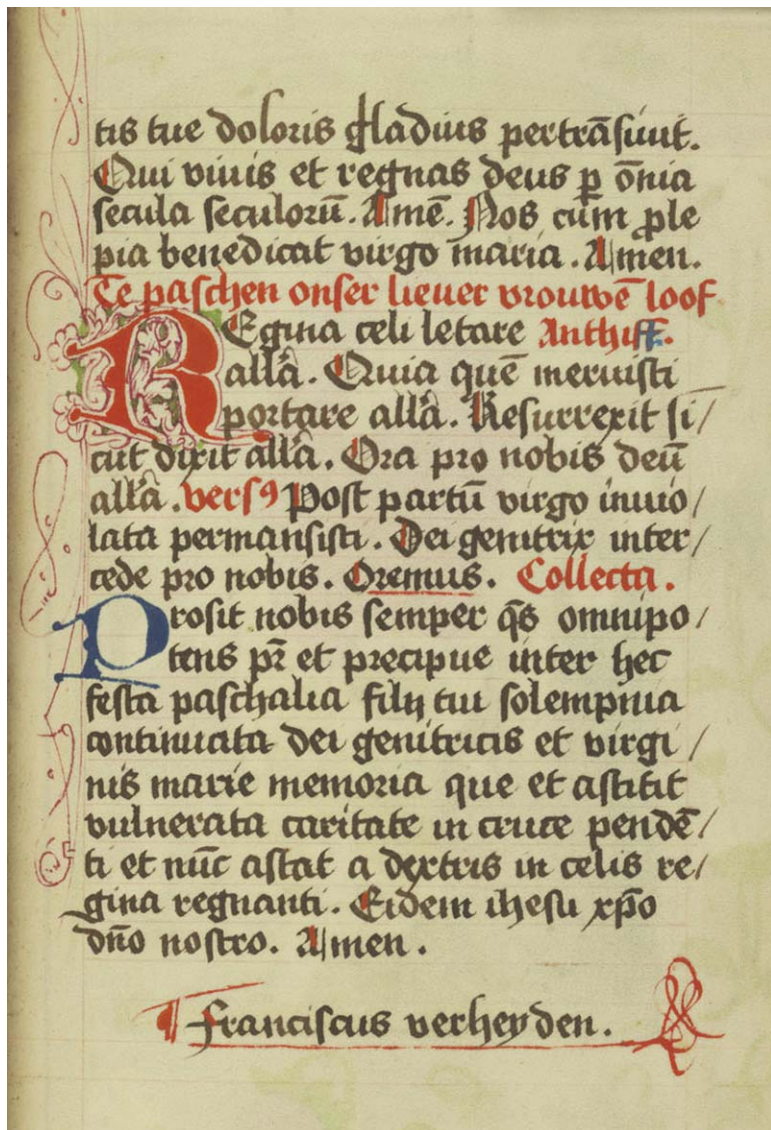 tis tue doloris gladius pertrāsiuit.
Qui viuis et regnas deus ꝑ ōnia
secula seculorū. Amē. Nos cum ꝓle
pia benedicat virgo maria. Amen.
Te paschen onser lieuer vrouwē loof
REgina celi letare Anthiff.
all̄a. Quia quē meruisti
portare all̄a. Resurrexit si/
cut dixit all̄a. Ora pro nobis deū
all̄a. versꝰ Post partū virgo inuio/
lata permansisti. Dei genitrix inter/
cede pro nobis. Oremus. Collecta.
Prosit nobis semper q̄s omnipo/
tens pr̄ et precipue inter hec
festa paschalia filij tui solempnia
continuata dei genitricis et virgi/
nis marie memoria que et astitit
vulnerata caritate in cruce pendē/
ti et nūc astat a dextris in celis re/
gina regnanti. Eidem ihesu xp̄o
dn̄o nostro. Amen.
¶ Franciscus verheyden.